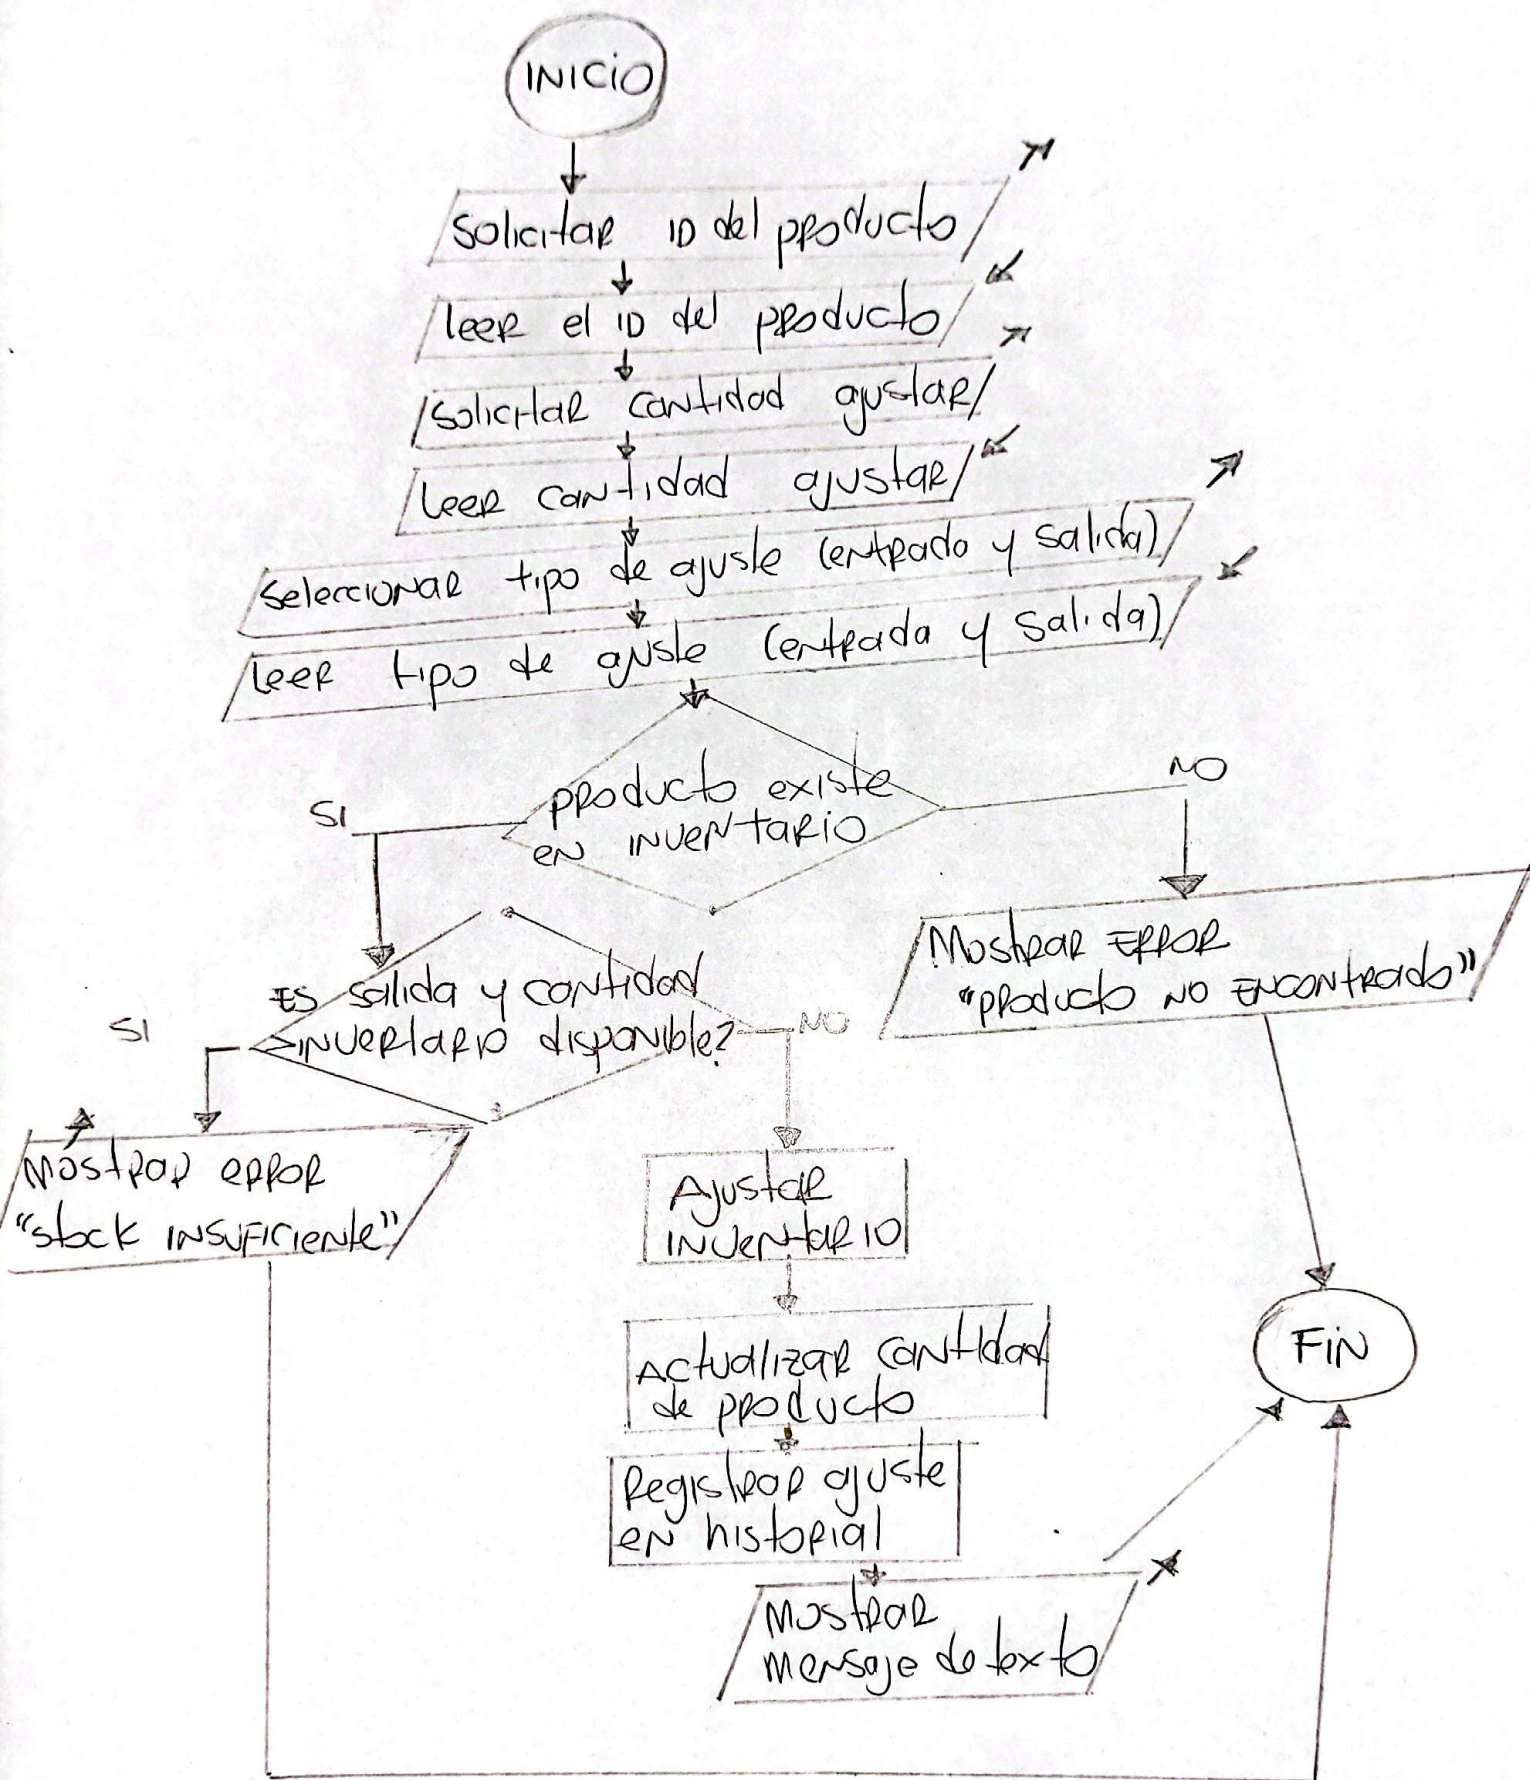 INICIO
Solicitar ID del producto
leer el ID del producto
Solicitar cantidad ajustar
Leer cantidad ajustar
Seleccionar tipo de ajuste (entrada y salida)
Leer tipo de ajuste (entrada y salida)
producto existe
en inventario
SI
NO
Mostrar ERROR
"producto NO ENCONTRADO"
ES salida y cantidad
inventario disponible?
SI
NO
Mostrar error
"stock INSUFICIENTE"
Ajustar
inventario
Actualizar cantidad
de producto
FIN
Registrar ajuste
en historial
Mostrar
mensaje de texto